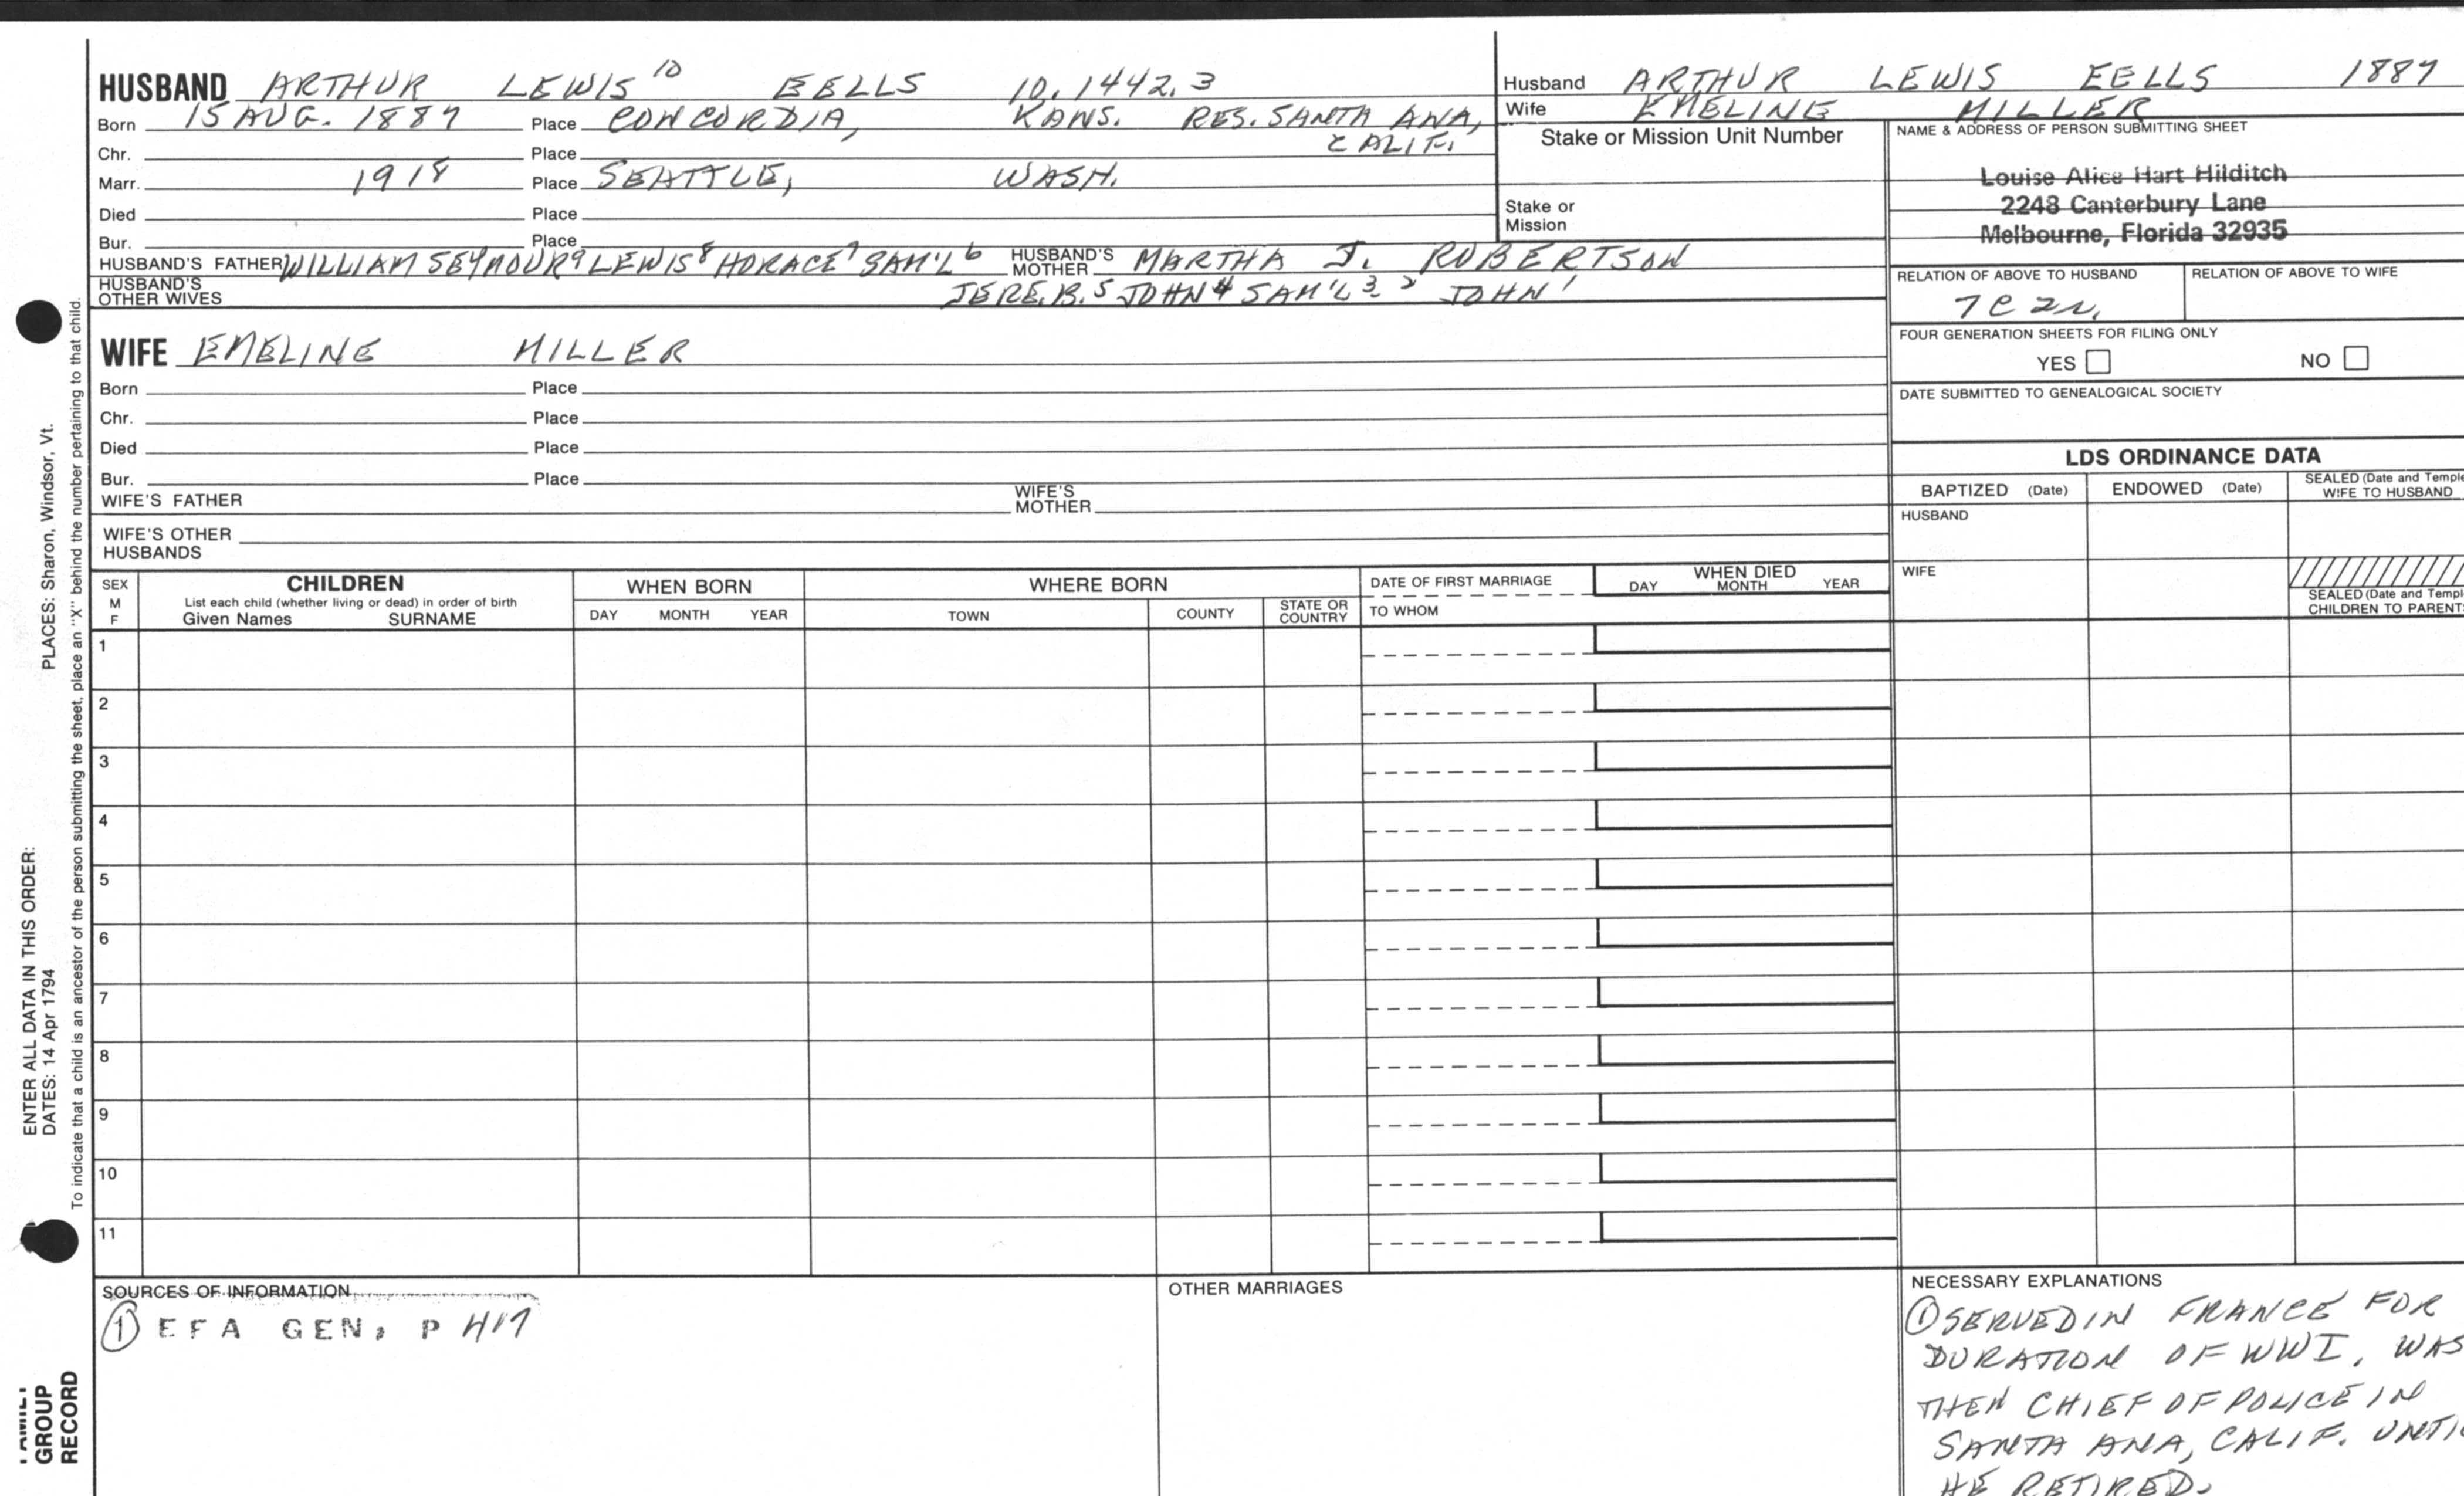 HUSBAND ARTHUR LEWIS 10 EELLS 10.1442.3
Born 15 AUG. 1887 Place CONCORDIA, KANS. RES. SANTA ANA,
CALIF.
Chr. Place
Marr. 1918 Place SEATTLE, WASH.
Died Place
Bur. Place
HUSBAND'S FATHER WILLIAM SEYMOUR 9 LEWIS 8 HORACE 7 SAM'L 6 HUSBAND'S MOTHER MARTHA J. ROBERTSON
HUSBAND'S OTHER WIVES JERE. B. 5 JOHN 4 SAM'L 3 2 JOHN 1
WIFE EMELINE MILLER
Born Place
Chr. Place
Died Place
Bur. Place
WIFE'S FATHER WIFE'S MOTHER
WIFE'S OTHER HUSBANDS
Husband ARTHUR LEWIS EELLS 1887
Wife EMELINE MILLER
Stake or Mission Unit Number
Stake or Mission
NAME & ADDRESS OF PERSON SUBMITTING SHEET
Louise Alice Hart Hilditch
2248 Canterbury Lane
Melbourne, Florida 32935
RELATION OF ABOVE TO HUSBAND RELATION OF ABOVE TO WIFE
7C 2r.
FOUR GENERATION SHEETS FOR FILING ONLY
YES NO
DATE SUBMITTED TO GENEALOGICAL SOCIETY
LDS ORDINANCE DATA
BAPTIZED (Date) ENDOWED (Date) SEALED (Date and Temple
WIFE TO HUSBAND
HUSBAND
WIFE
SEALED (Date and Templ
CHILDREN TO PARENT
SEX
M
F
CHILDREN
List each child (whether living or dead) in order of birth
Given Names SURNAME
WHEN BORN
DAY MONTH YEAR
WHERE BORN
TOWN COUNTY STATE OR COUNTRY
DATE OF FIRST MARRIAGE
TO WHOM
WHEN DIED
DAY MONTH YEAR
1
2
3
4
5
6
7
8
9
10
11
SOURCES OF INFORMATION
1 EFA GEN, P 417
OTHER MARRIAGES
NECESSARY EXPLANATIONS
1 SERVED IN FRANCE FOR
DURATION OF WWI, WAS
THEN CHIEF OF POLICE IN
SANTA ANA, CALIF. UNTIL
HE RETIRED.
ENTER ALL DATA IN THIS ORDER:
DATES: 14 Apr 1794 PLACES: Sharon, Windsor, Vt.
To indicate that a child is an ancestor of the person submitting the sheet, place an "X" behind the number pertaining to that child.
FAMILY
GROUP
RECORD